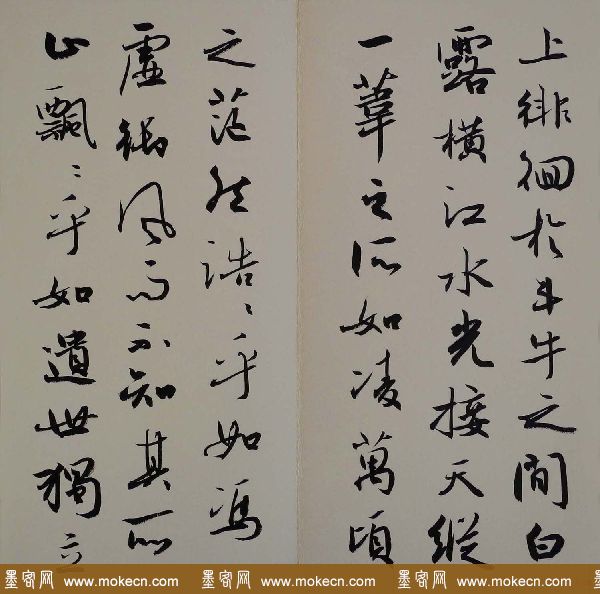 上徘徊於斗牛之間白
露橫江水光接天縱
一葦之所如凌萬頃
之茫然浩〻乎如馮
虛御風而不知其所
止飄〻乎如遺世獨立
墨客网 www.mokecn.com 墨客网 www.mokecn.com 墨客网 www.mokecn.com